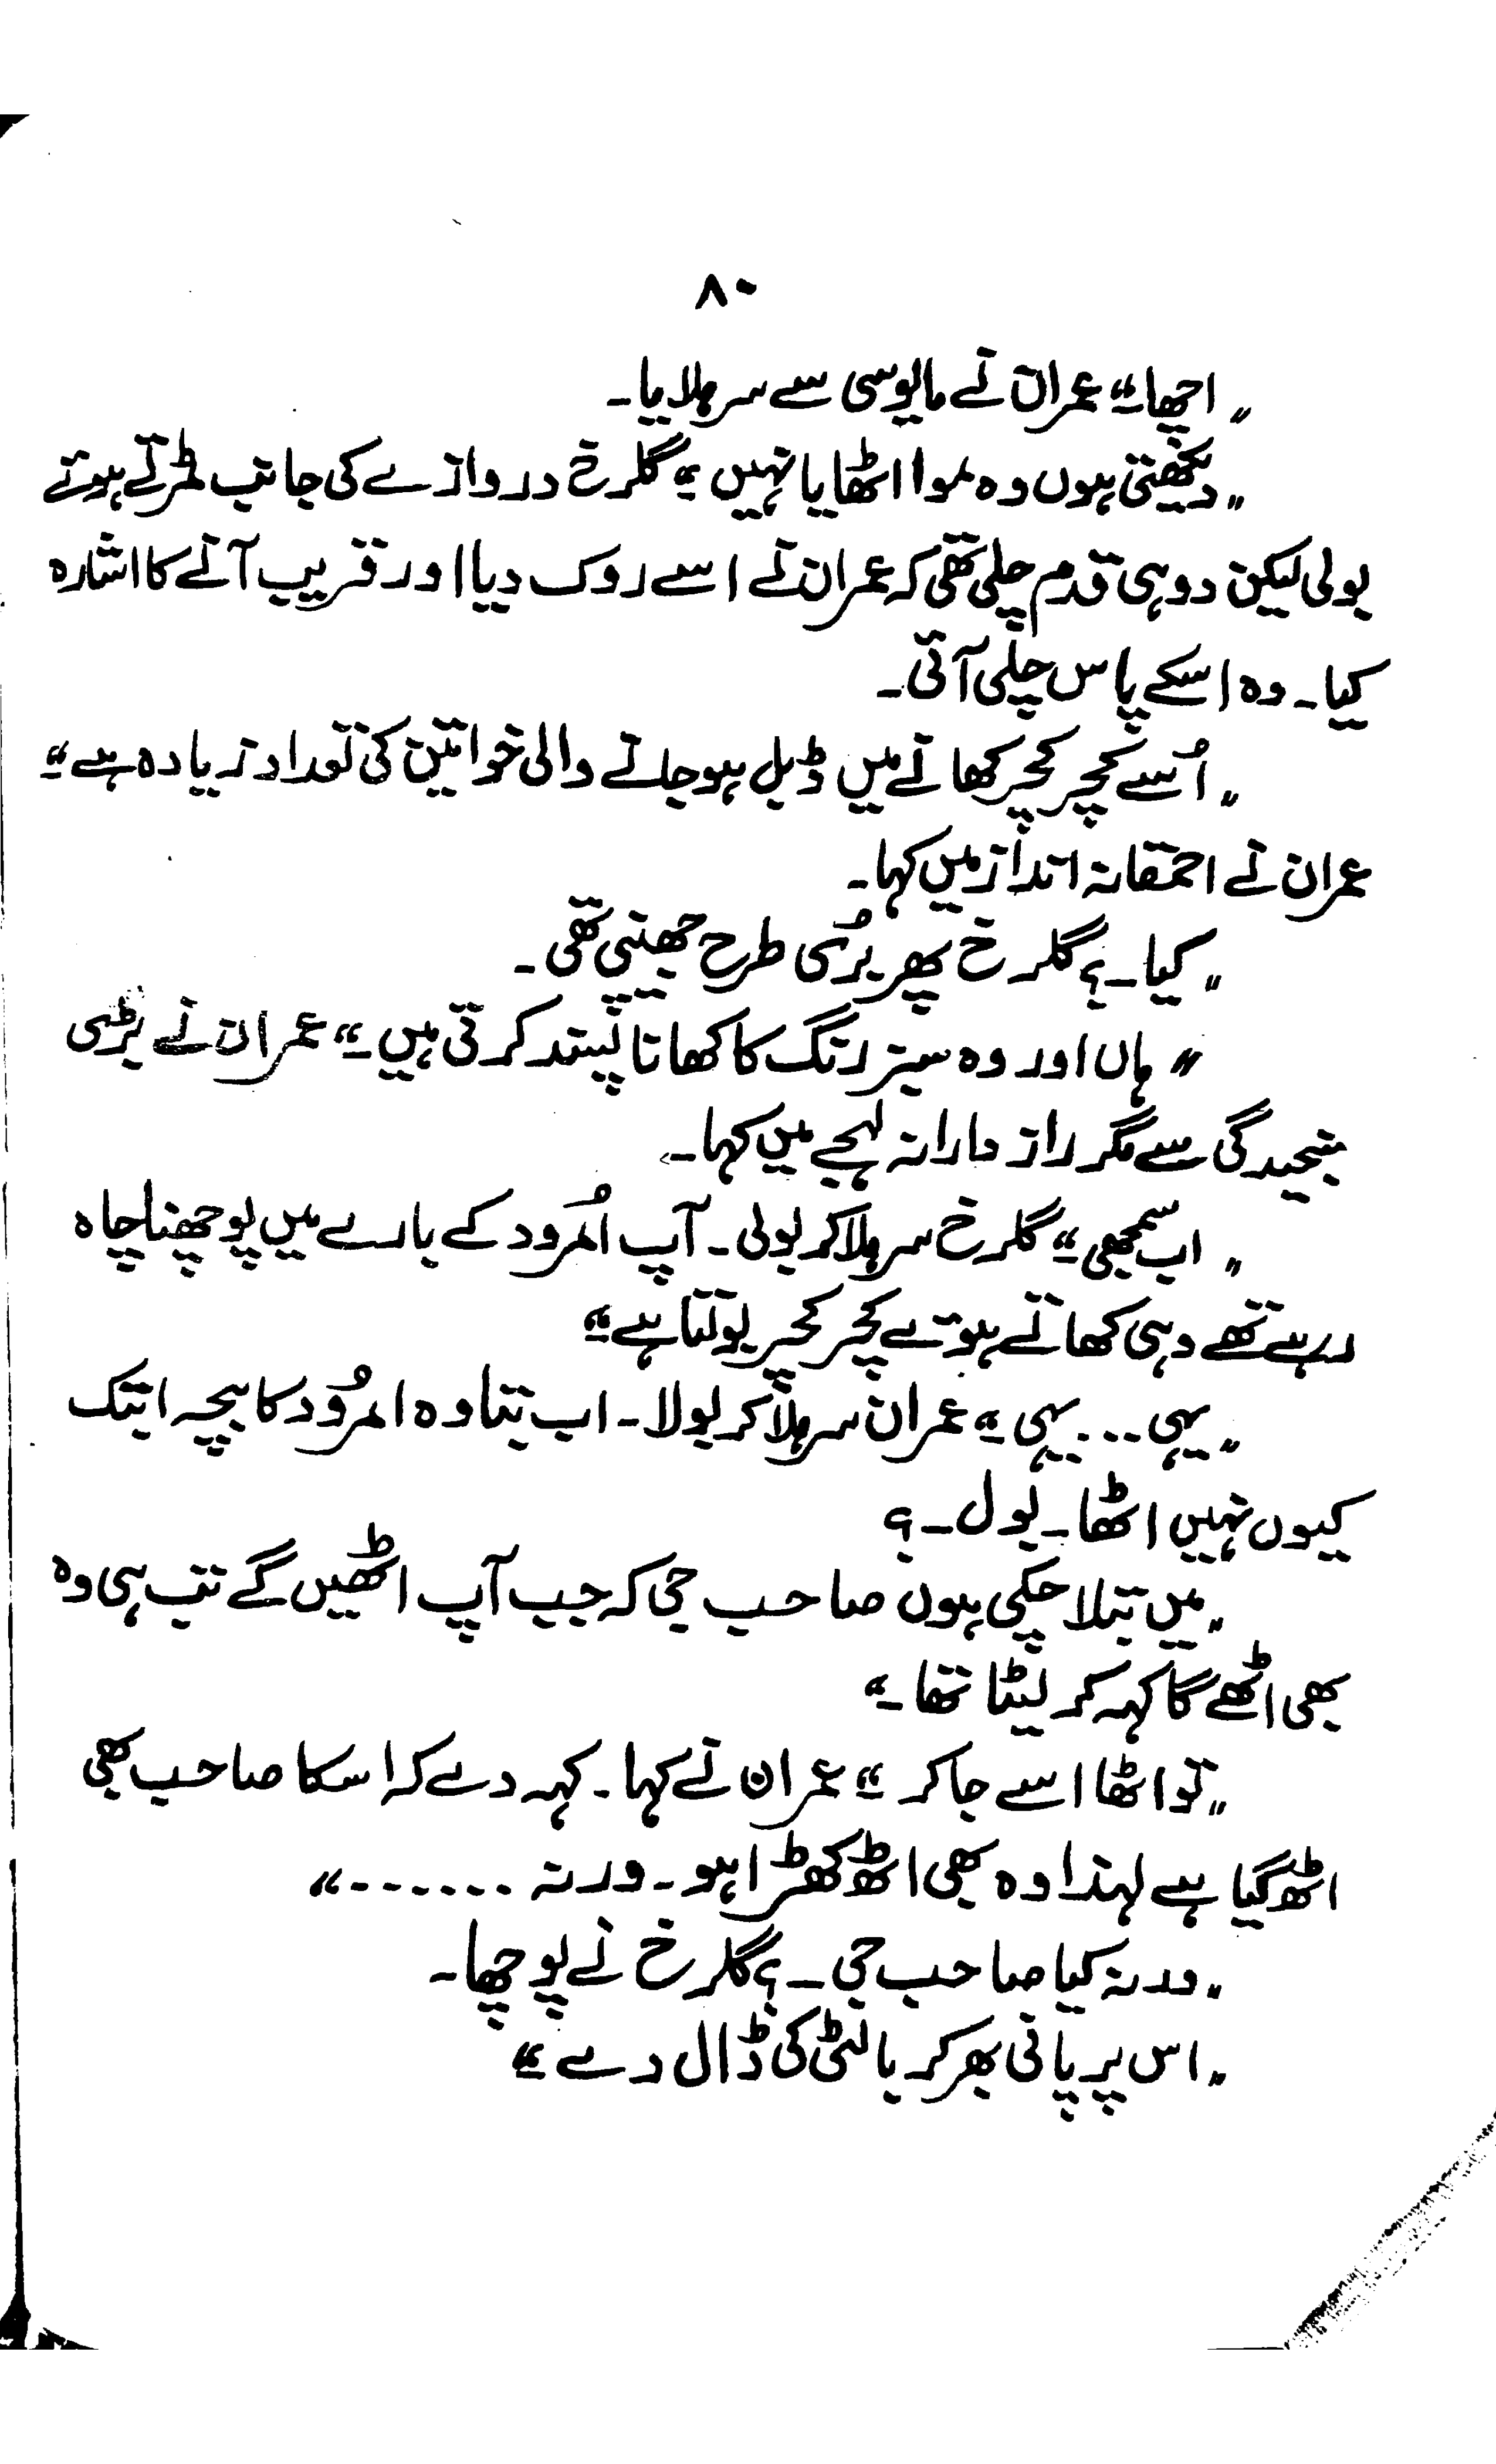 ۸۰
„ اچھا۔“ عمران نے مایوسی سے سر ہلایا۔
„ دیکھتی ہوں وہ موا اٹھا یا نہیں۔“ گلرخ دروازے کی جانب مڑتے ہوئے
بولی لیکن دو ہی قدم چلی تھی کہ عمران نے اسے روک دیا اور قریب آنے کا اشارہ
کیا۔ وہ اسکے پاس چلی آئی۔
„ اُسے کچر کچر کھانے میں ڈبل ہو جانے والی خواتین کی تعداد زیادہ ہے“
عمران نے احمقانہ انداز میں کہا۔
„ کیا۔؟ گلرخ پھر بُری طرح جھینپی تھی۔
„ ہاں اور وہ سبز رنگ کا کھانا پسند کرتی ہیں۔“ عمران نے بڑی
سنجیدگی سے مگر راز دارانہ لہجے میں کہا۔
„ اب سمجھی۔“ گلرخ سر ہلا کر بولی۔ آپ امُرود کے بارے میں پوچھنا چاہ
رہے تھے وہی کھاتے ہوئے کچر کچر بولتا ہے۔“
„ یہی ... یہی۔“ عمران سر ہلا کر بولا۔ اب بتا وہ امرُود کا بچہ ابتک
کیوں نہیں اٹھا۔ بول۔؟
„ میں بتلا چکی ہوں صاحب جی کہ جب آپ اٹھیں گے تب ہی وہ
بھی اٹھے گا کہہ کر لیٹا تھا۔“
„ تو اٹھا اسے جا کر۔“ عمران نے کہا۔ کہہ دے کہ اسکا صاحب بھی
اٹھ گیا ہے لہذا وہ بھی اٹھ کھڑا ہو۔ ورنہ ......“
„ ورنہ کیا صاحب جی۔؟ گلرخ نے پوچھا۔
„ اس پر پانی بھر کر بالٹی کی ڈال دے۔“